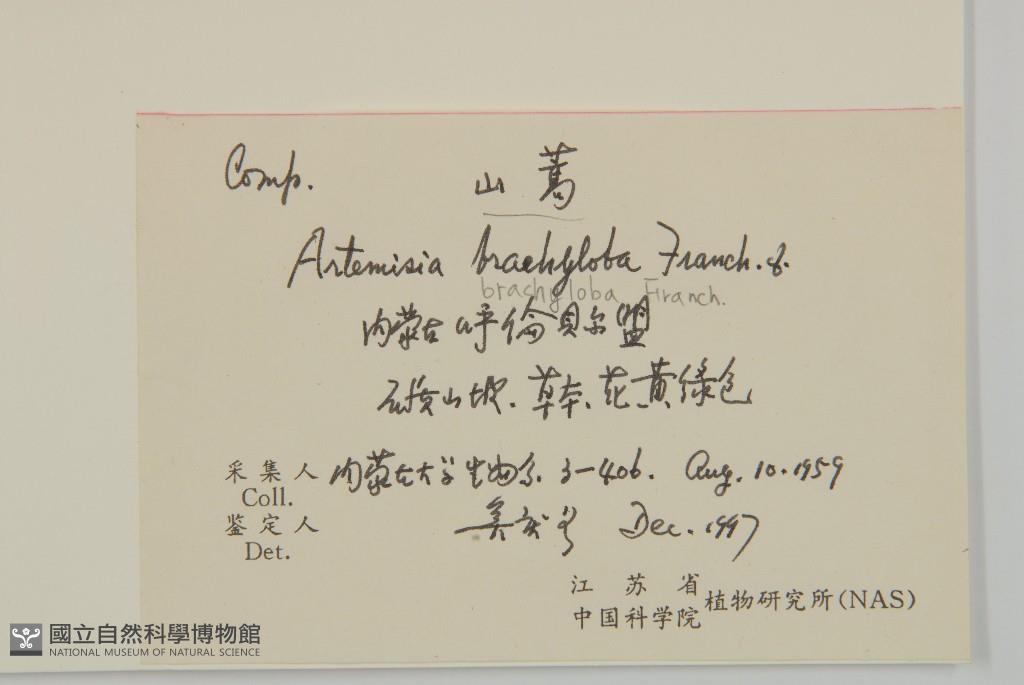 Comp. 山蒿
Artemisia brachyloba Franch. &.
brachyloba Franch.
内蒙古呼倫贝尔盟
砾质山坡. 草本. 花黄綠色
采集人 内蒙古大学生物系 3-406. Aug. 10. 1959
Coll.
鉴定人 Dec. 1997
Det.
江苏省
中国科学院 植物研究所(NAS)
國立自然科學博物館
NATIONAL MUSEUM OF NATURAL SCIENCE